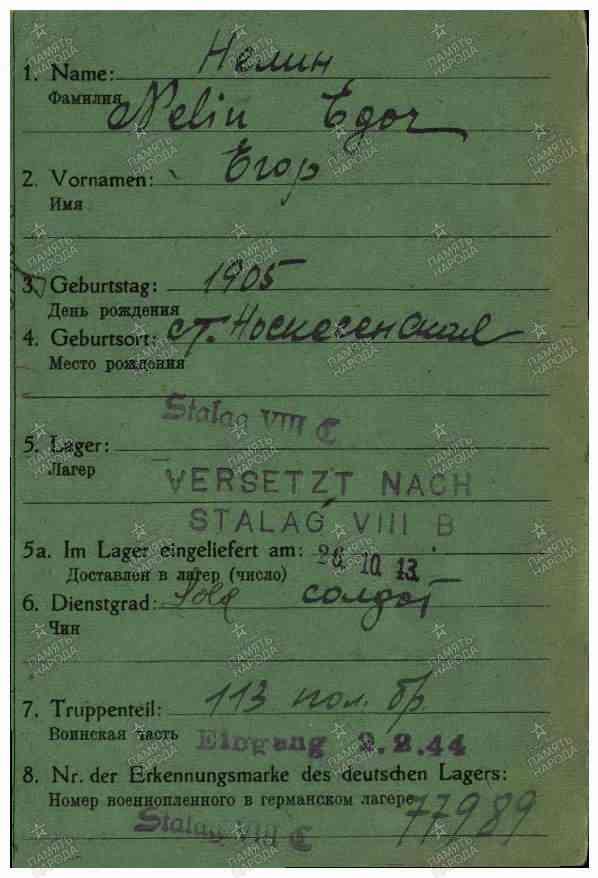 Нелин
1. Name:
Фамилия
Nelin Egor
Егор
2. Vornamen:
Имя
3. Geburtstag: 1905
День рождения
4. Geburtsort: ст.
Место рождения
Stalag VIII C
5. Lager:
Лагер
VERSETZT NACH
STALAG VIII B
5a. Im Lager eingeliefert am: 26. 10. 13.
Доставлен в лагер (число)
6. Dienstgrad: Sold солдат
Чин
7. Truppenteil: 113 пол. бр
Воинская часть
Eingang 2.2.44
8. Nr. der Erkennungsmarke des deutschen Lagers:
Номер военнопленного в германском лагере
77989
Stalag VIII C
ПАМЯТЬ НАРОДА